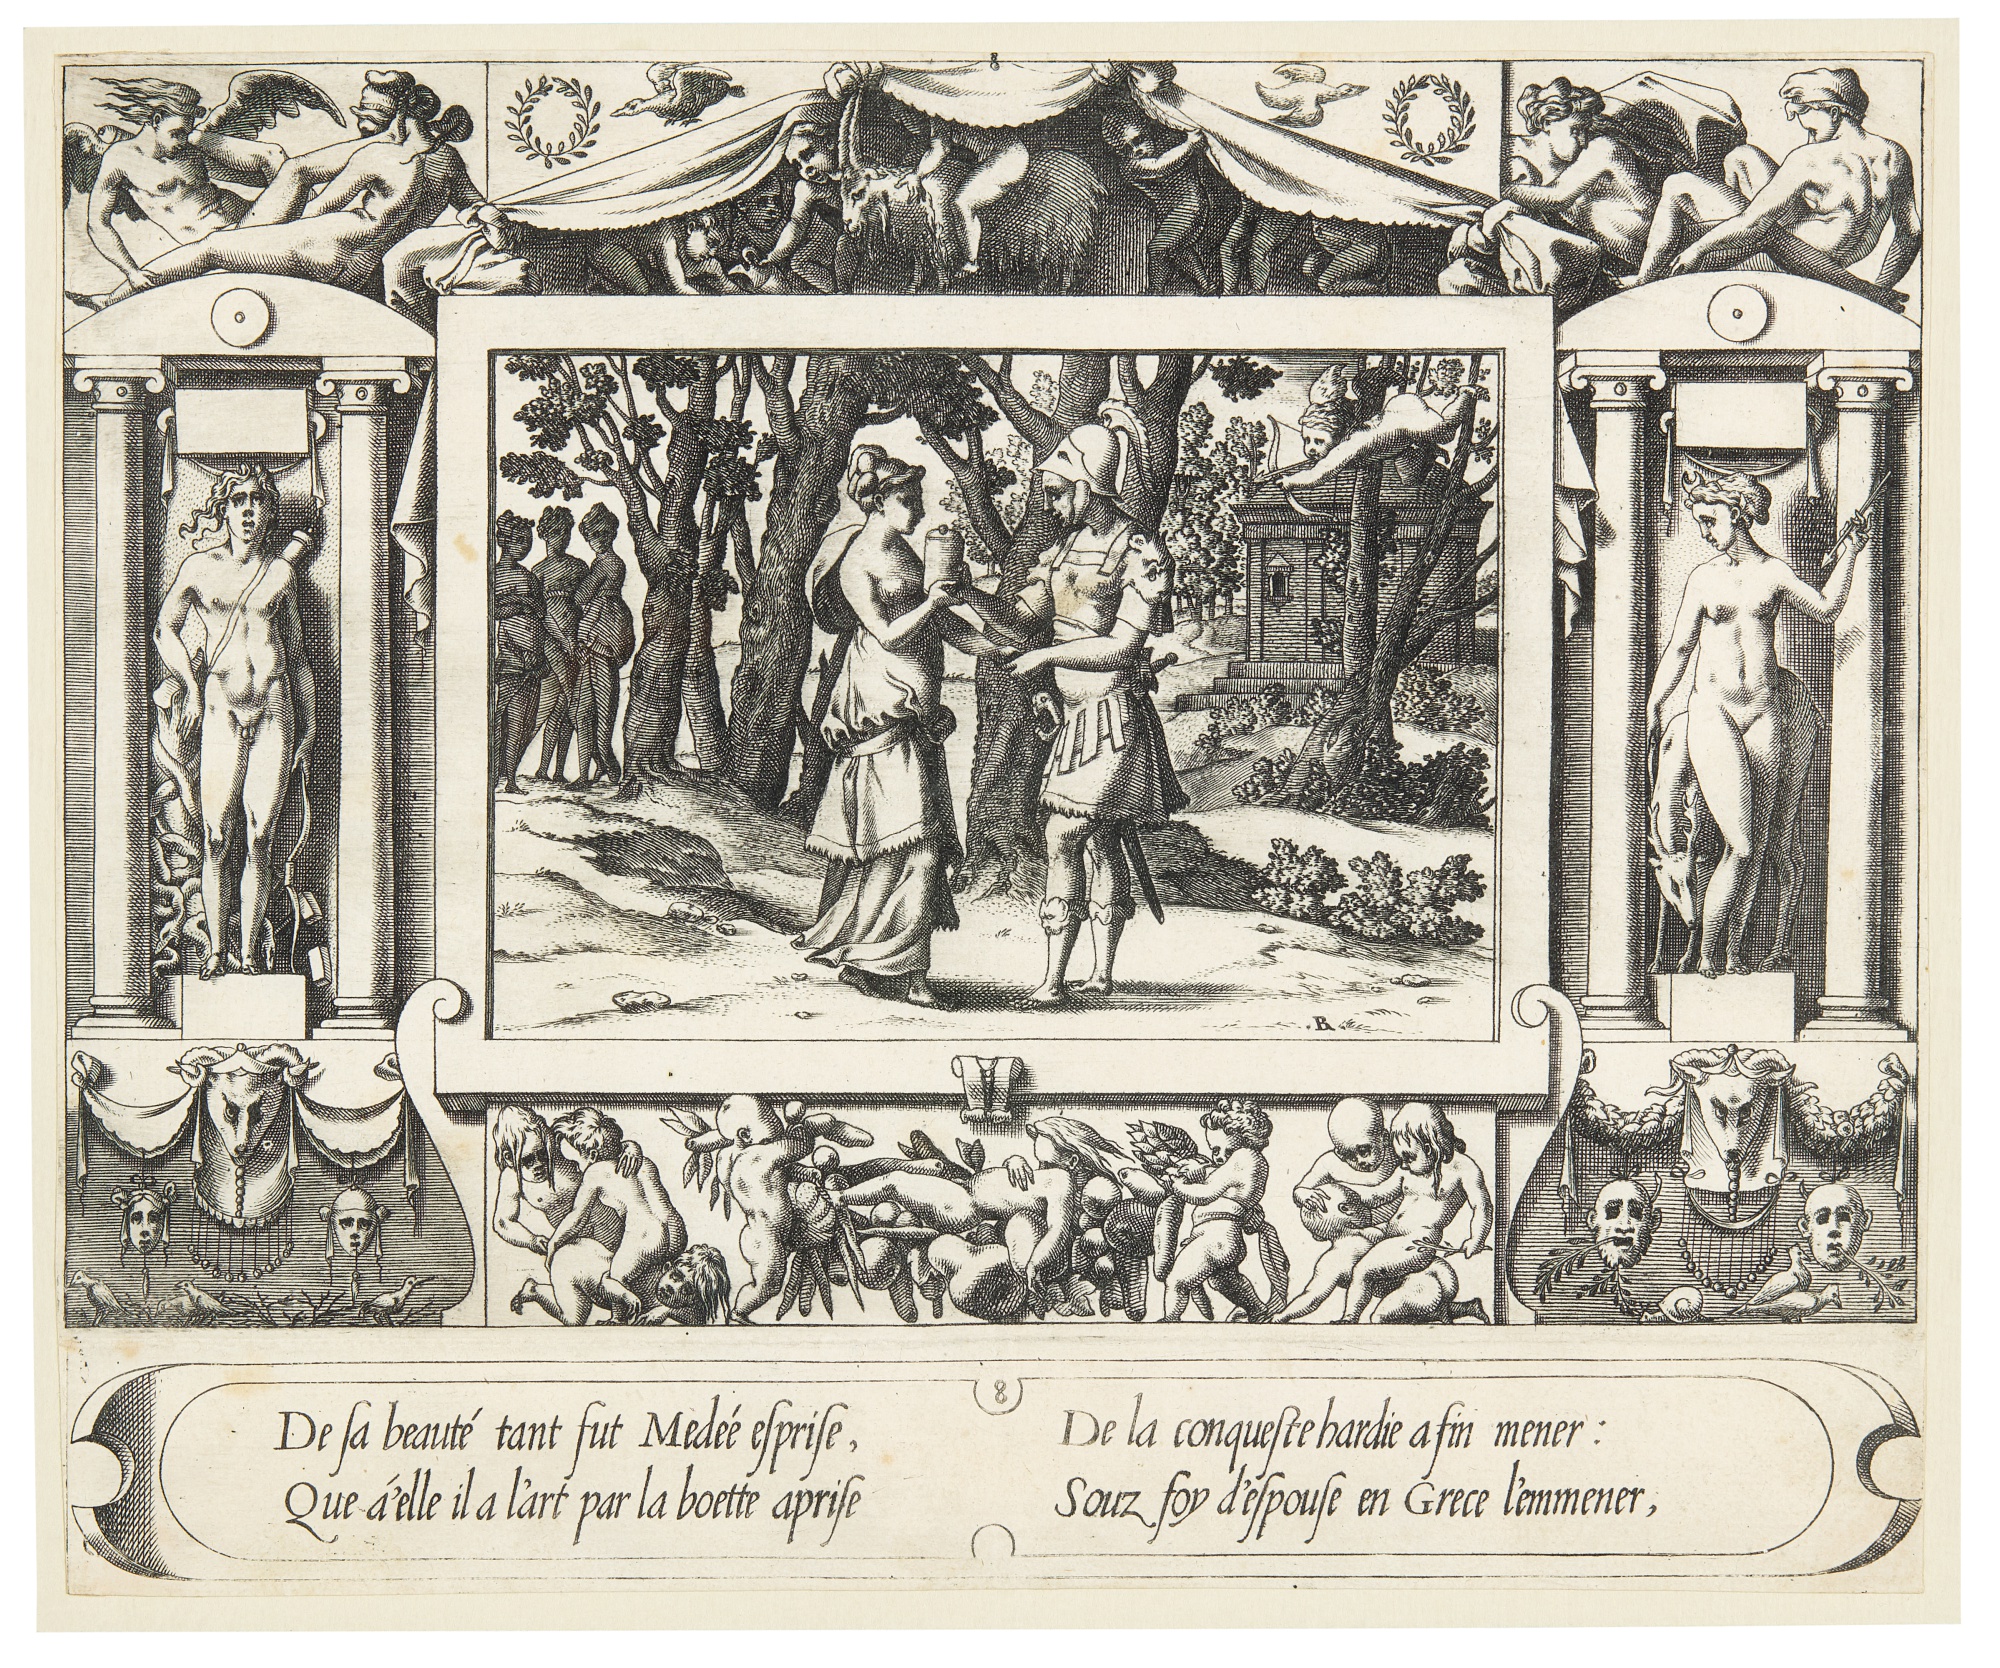 8
B
8
De sa beauté tant fut Medéé esprise,
Que á'elle il a l'art par la boette aprise
De la conqueste hardie a fin mener :
Souz foy d'espouse en Grece l'emmener,